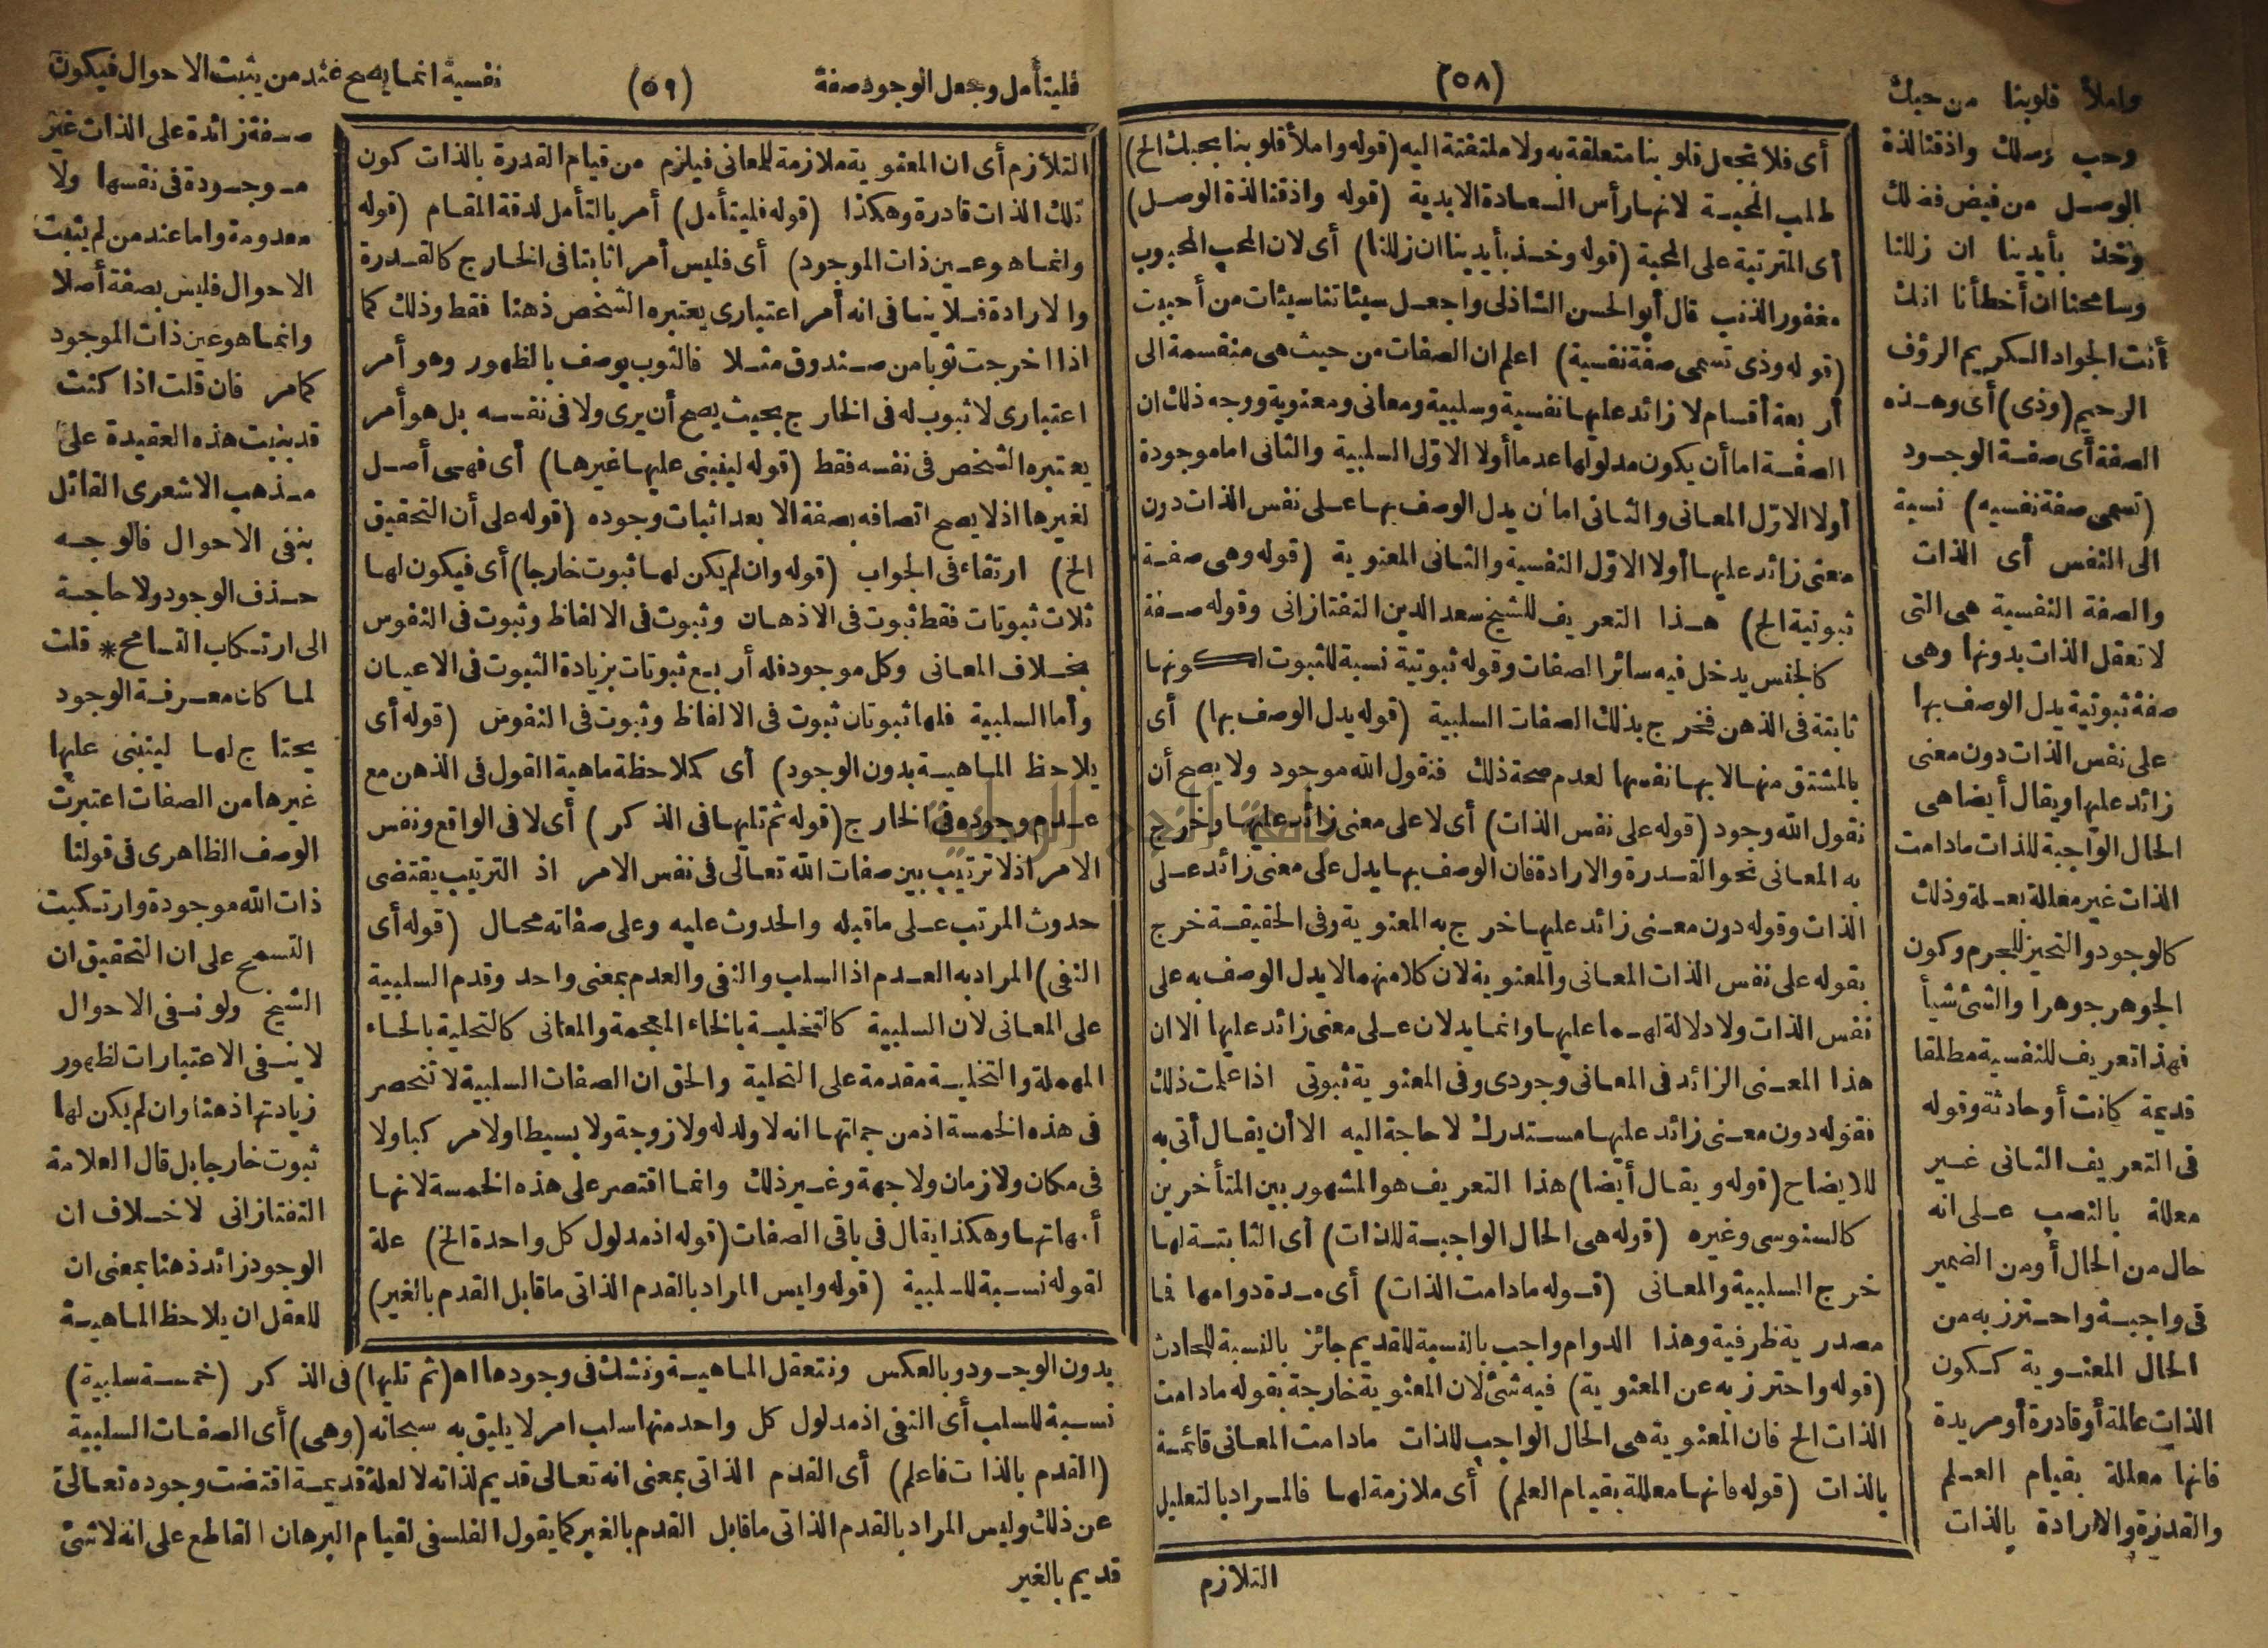 (٥٨)
واملأ قلوبنا من حبك
وحب رسلك واذقنا لذة
الوصل من فيض فضلك
وخذ بأيدينا ان زللنا
وسامحنا ان أخطأنا انك
أنت الجواد الكريم الرؤف
الرحيم (وذى) أى وهذه
الصفة أى صفة الوجود
(تسمى صفة نفسيه) نسبة
الى النفس أى الذات
والصفة النفسية هى التى
لا تعقل الذات بدونها وهى
صفة ثبوتية يدل الوصف بها
على نفس الذات دون معنى
زائد عليها ويقال أيضا هى
الحال الواجبة للذات مادامت
الذات غير معللة بعلة وذلك
كالوجود والتحيز للجرم وكون
الجوهر جوهرا والشئ شيأ
فهذا تعريف للنفسية مطلقا
قديمة كانت أو حادثة وقوله
فى التعريف الثانى غير
معللة بالنصب على انه
حال من الحال أو من الضمير
فى واجبة واحترز به من
الحال المعنوية ككون
الذات عالمة أو قادرة أو مريدة
فانها معللة بقيام العلم
والقدرة والارادة بالذات
أى فلا تجعل قلوبنا متعلقة به ولا ملتفتة اليه (قوله واملأ قلوبنا بحبك الخ)
طلب المحبة لانها رأس السعادة الابدية (قوله واذقنا لذة الوصل)
أى المترتبة على المحبة (قوله وخذ بأيدينا ان زللنا) أى لان المحب المحبوب
مغفور الذنب قال أبو الحسن الشاذلى واجعل سيئاتنا سيئات من أحببت
(قوله وذى تسمى صفة نفسية) اعلم ان الصفات من حيث هى منقسمة الى
أربعة أقسام لا زائد عليها نفسية وسلبية ومعانى ومعنوية ووجه ذلك ان
الصفة اما أن يكون مدلولها عدما أولا الاول السلبية والثانى اما موجودة
أولا الاول المعانى والثانى اما أن يدل الوصف بها على نفس الذات دون
معنى زائد عليها أولا الاول النفسية والثانى المعنوية (قوله وهى صفة
ثبوتية الخ) هذا التعريف للشيخ سعد الدين التفتازانى وقوله صفة
كالجنس يدخل فيه سائر الصفات وقوله ثبوتية نسبة للثبوت لكونها
ثابتة فى الذهن فخرج بذلك الصفات السلبية (قوله يدل الوصف بها) أى
بالمشتق منها لا بها نفسها لعدم صحة ذلك فنقول الله موجود ولا يصح أن
نقول الله وجود (قوله على نفس الذات) أى لا على معنى زائد عليها وخرج
به المعانى نحو القدرة والارادة فان الوصف بها يدل على معنى زائد على
الذات وقوله دون معنى زائد عليها خرج به المعنوية وفى الحقيقة خرج
بقوله على نفس الذات المعانى والمعنوية لان كلا منهما لا يدل الوصف به على
نفس الذات ولا دلالة لهما عليها وانما يدلان على معنى زائد عليها الا ان
هذا المعنى الزائد فى المعانى وجودى وفى المعنوية ثبوتى اذا علمت ذلك
فقوله دون معنى زائد عليها مستدرك لا حاجة اليه الا أن يقال أتى به
للايضاح (قوله ويقال أيضا) هذا التعريف هو المشهور بين المتأخرين
كالسنوسى وغيره (قوله هى الحال الواجبة للذات) أى الثابتة لها
خرج السلبية والمعانى (قوله مادامت الذات) أى مدة دوامها فما
مصدرية ظرفية وهذا الدوام واجب بالنسبة للقديم جائز بالنسبة للحادث
(قوله واحترز به عن المعنوية) فيه شئ لان المعنوية خارجة بقوله مادامت
الذات الخ فان المعنوية هى الحال الواجب للذات مادامت المعانى قائمة
بالذات (قوله فانها معللة بقيام العلم) أى ملازمة لها فالمراد بالتعليل
التلازم
فليتأمل وجعل الوجود صفة (٥٩) نفسية انما يصح عند من يثبت الاحوال فيكون
صفة زائدة على الذات غير
موجودة فى نفسها ولا
معدومة واما عند من لم يثبت
الاحوال فليس بصفة أصلا
وانما هو عين ذات الموجود
كما مر فان قلت اذا كنت
قد بنيت هذه العقيدة على
مذهب الاشعرى القائل
بنفى الاحوال فالوجه
حذف الوجود ولا حاجة
الى ارتكاب التسامح * قلت
لما كان معرفة الوجود
يحتاج لها لينبنى عليها
غيرها من الصفات اعتبرت
الوصف الظاهرى فى قولنا
ذات الله موجودة وارتكبت
التسمح على ان التحقيق ان
الشيخ ولو نفى الاحوال
لا ينفى الاعتبارات لظهور
زيادتها ذهنا وان لم يكن لها
ثبوت خارجا بل قال العلامة
التفتازانى لا خلاف ان
الوجود زائد ذهنا بمعنى ان
للعقل ان يلاحظ الماهية
التلازم أى ان المعنوية ملازمة للمعانى فيلزم من قيام القدرة بالذات كون
تلك الذات قادرة وهكذا (قوله فليتأمل) أمر بالتأمل لدقة المقام (قوله
وانما هو عين ذات الموجود) أى فليس أمرا ثابتا فى الخارج كالقدرة
والارادة فلا ينافى انه أمر اعتبارى يعتبره الشخص ذهنا فقط وذلك كما
اذا اخرجت ثوبا من صندوق مثلا فالثوب يوصف بالظهور وهو أمر
اعتبارى لا ثبوب له فى الخارج بحيث يصح أن يرى ولا فى نفسه بل هو أمر
يعتبره الشخص فى نفسه فقط (قوله لينبنى عليها غيرها) أى فهى أصل
لغيرها اذ لا يصح اتصافه بصفة الا بعد اثبات وجوده (قوله على أن التحقيق
الخ) ارتقاء فى الجواب (قوله وان لم يكن لها ثبوت خارجا) أى فيكون لها
ثلاث ثبوتات فقط ثبوت فى الاذهان وثبوت فى الالفاظ وثبوت فى النفوس
بخلاف المعانى وكل موجود فله أربع ثبوتات بزيادة الثبوت فى الاعيان
وأما السلبية فلها ثبوتان ثبوت فى الالفاظ وثبوت فى النفوس (قوله أى
يلاحظ الماهية بدون الوجود) أى كملاحظة ماهية القول فى الذهن مع
عدم وجوده فى الخارج (قوله ثم تليها فى الذكر) أى لا فى الواقع ونفس
الامر اذ لا ترتيب بين صفات الله تعالى فى نفس الامر اذ الترتيب يقتضى
حدوث المرتب على ما قبله والحدوث عليه وعلى صفاته محال (قوله أى
النفى) المراد به العدم اذ السلب والنفى والعدم بمعنى واحد وقدم السلبية
على المعانى لان السلبية كالتخلية بالخاء المعجمة والمعانى كالتحلية بالحاء
المهملة والتخلية مقدمة على التحلية والحق ان الصفات السلبية لا تنحصر
فى هذه الخمسة اذ من جملتها انه لا ولد له ولا زوجة ولا بسيطا ولا مركبا ولا
فى مكان ولا زمان ولا جهة وغير ذلك وانما اقتصر على هذه الخمسة لانها
أمهاتها وهكذا يقال فى باقى الصفات (قوله اذ مدلول كل واحدة الخ) علة
لقوله نسبة للسلبية (قوله وليس المراد بالقدم الذاتى ما قابل القدم بالغير)
بدون الوجود وبالعكس ونتعقل الماهية ونشك فى وجودها اه (ثم تليها) فى الذكر (خمسة سلبية)
نسبة للسلب أى النفى اذ مدلول كل واحد منها سلب امر لا يليق به سبحانه (وهى) أى الصفات السلبية
(القدم بالذات فاعلم) أى القدم الذاتى بمعنى انه تعالى قديم لذاته لا لعلة قديمة اقتضت وجوده تعالى
عن ذلك وليس المراد بالقدم الذاتى ما قابل القدم بالغير كما يقول الفلسفى لقيام البرهان القاطع على انه لا شئ
قديم بالغير